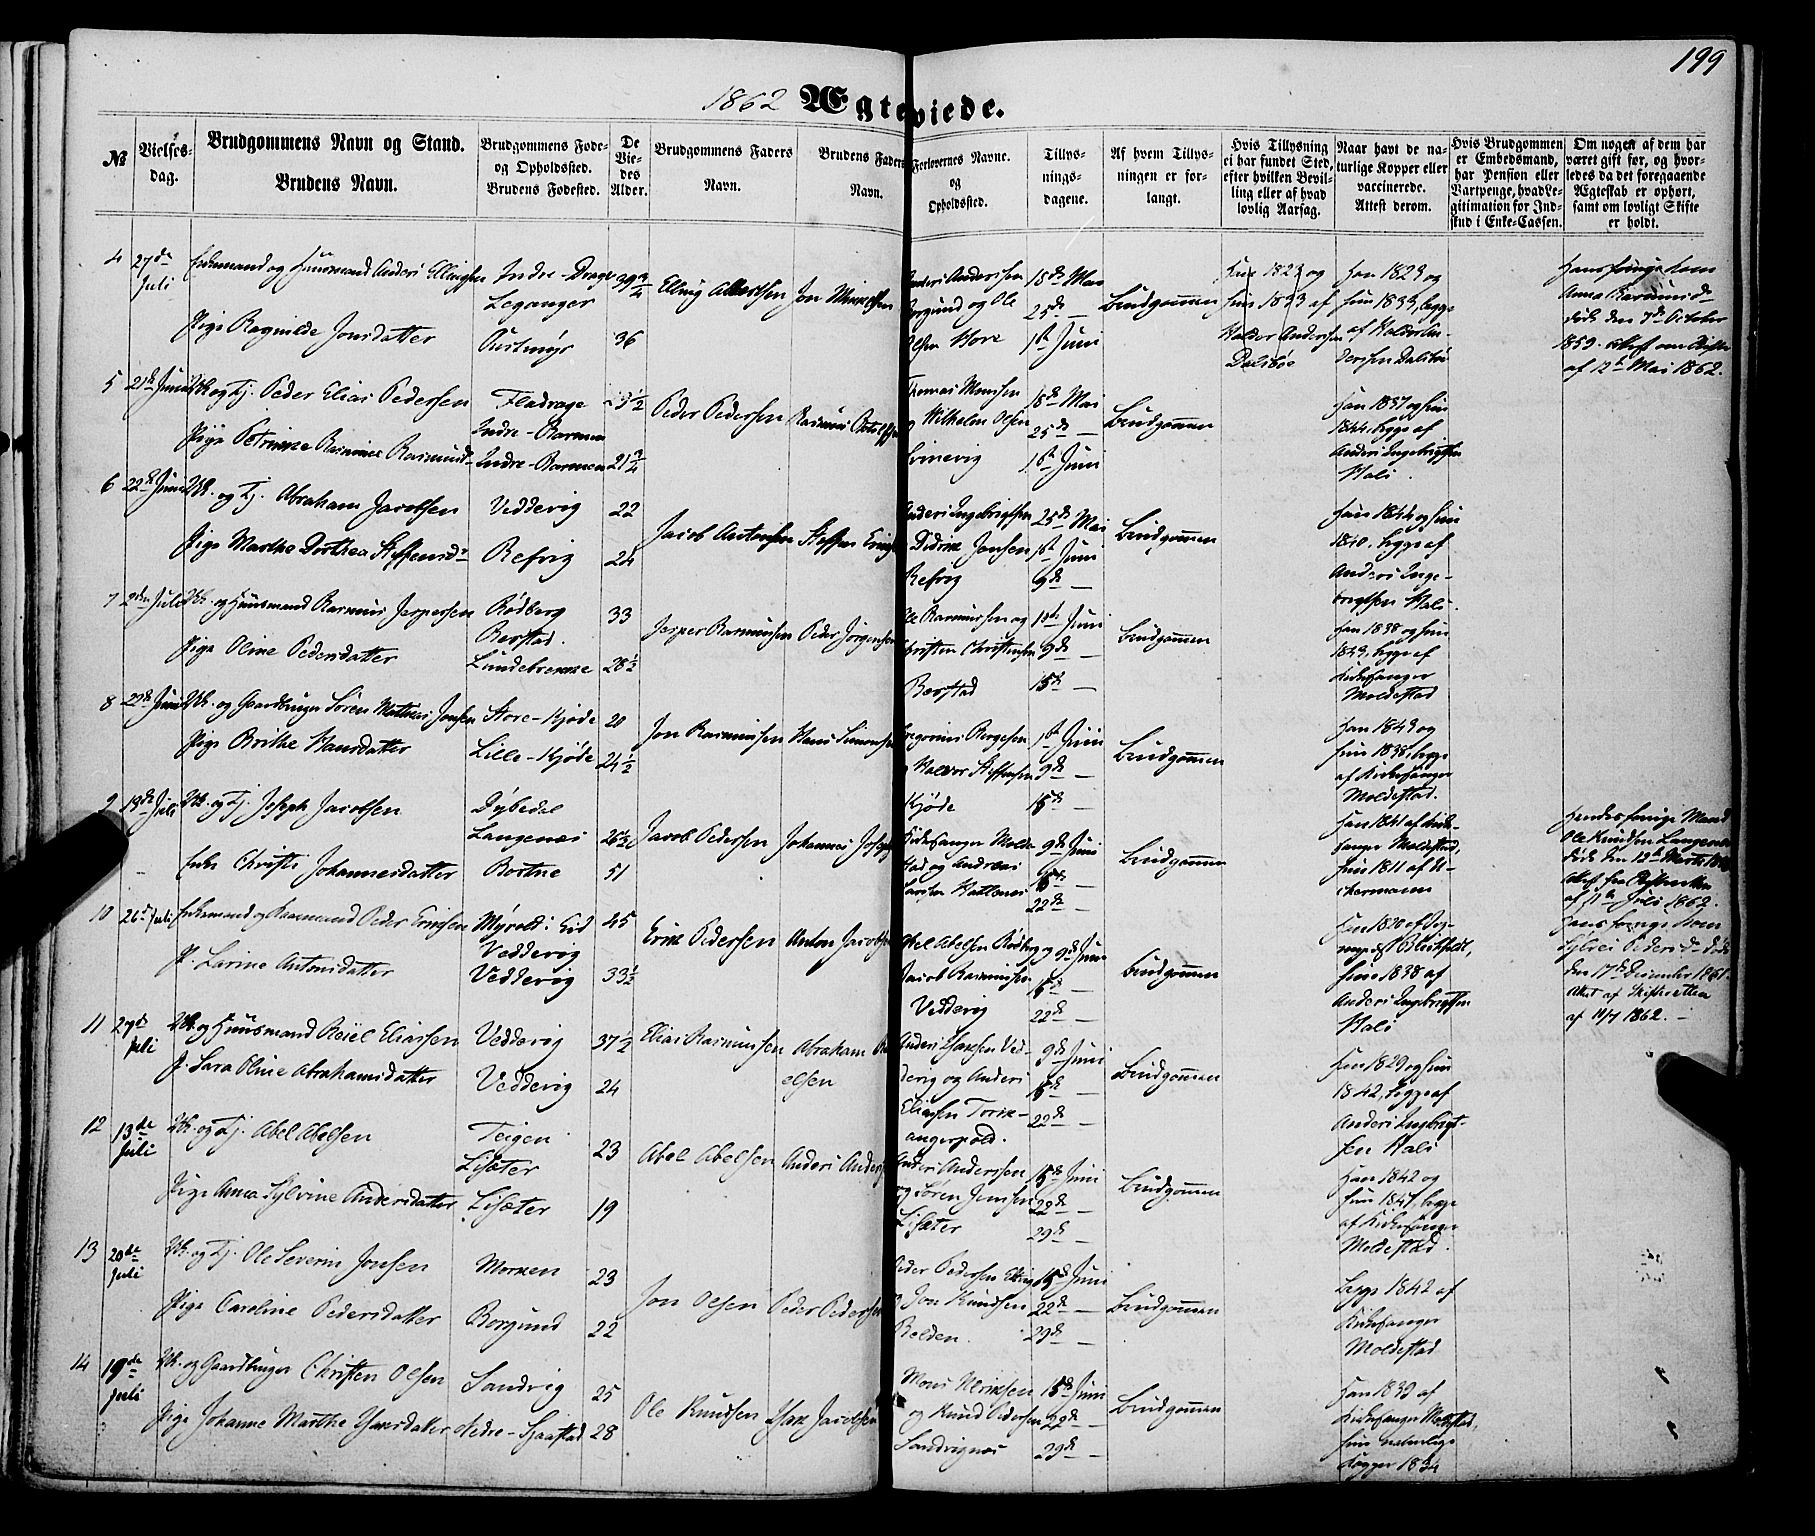 199
1862 Ægteviede.
№
Vielses-
dag.
Brudgommens Navn og Stand.
Brudens Navn.
Brudgommens Føde-
og Opholdssted.
Brudens Fødested.
De
Vie-
des
Alder.
Brudgommens Faders
Navn.
Brudens Faders
Navn.
Forlovernes Navne.
og
Opholdssted.
Tillys-
nings-
dagene.
Af hvem Tillys-
ningen er for-
langt.
Hvis Tillysning
ei har fundet Sted,
efter hvilken Bevil-
ling eller af hvad
lovlig Aarsag.
Naar havt de na-
turlige Kopper eller
vaccinerede.
Attest derom.
Hvis Brudgommen
er Embedsmand,
har Pension eller
Vartpenge, hvad Le-
gitimation for Ind-
skud i Enke-Cassen.
Om nogen af dem har
været gift før, og hvor-
ledes da det foregaaende
Ægteskab er ophørt,
samt om lovligt Skifte
er holdt.
4
27de
Juli
Enkemand og Huusmand Anders Ellingsen
Pige Ragnilde Jonsdatter
Indre-Drage
Leganger
39 3/4
36
Jon Mikkelsen
Anders Andersen
Borgund og Ole
Olsen Hore
18de Mai
25de —
1st Juni
Brudgommen
Han 1823 og
Hun 1833 af
Halvor Andersen
Dalsbøe
Han 1823 og
Hun 1833, begge
af Halvor An-
dersen Dalsbø
Hans forrige Kone
Anna Rasmusdr
døde den 7de October
1859. Attest om Skifte
af 12te Mai 1862.
5
21de Juni
Uk. og Tj. Peder Elias Pedersen
Pige Petrikke Rasmine Rasmusdr
Fladrage
Indre-Barmen
Indre-Barmen
21 3/4
Peder Pedersen
Thomas Monsen
og Wilhelm Olsen
18de Mai
25de —
1st Juni
Brudgommen
Han 1837 og Hun
1844, begge af
Anders Ingebrigtsen
Hals.
6
22de Juni
Uk. og Tj. Abraham Jacobsen
Pige Marthe Dorthea Steffensdr
Veddevig
Refvig
22
24
Anders Ingebrigtsen
Didrik Jonsen
Refvig
25de Mai
1st Juni
9de —
Brudgommen
Han 1844 og Hun
1840, begge af
Anders Inge-
brigtsen Hals.
7
2den Juli
Uk. og Huusmand Rasmus Jespersen
Pige Oline Pedersdatter
Rødberg
Berstad.
Lundebrekke
33
28 1/2
Jesper Rasmussen
Peder Jørgensen
Ole Rasmussen og
Christen Christensen
Berstad
1ste Juni
9de —
15de —
Brudgommen
Han 1838 og Hun
1843, begge af
Kirkesanger
Moldestad
8
22de Juni
Uk. og Gaardbruger Søren Mathias Jonsen
Pige Brithe Hansdatter
Store-Kjøde
Lille-Kjøde
20
24 1/2
Jon Rasmussen
Hans Simonsen
Gregorius Børgesen
og Halvor Steffensen
Kjøde
1st Juni
9de —
15de —
Brudgommen
Han 1843 og
Hun 1838, begge
af Kirkesanger
Moldestad.
9
13de Juli
Uk. og Tj. Joseph Jacobsen
Enke Christi Johannesdatter
Dybedal
Langenæs
Bortne
26 1/2
51
Jacob Pedersen
Johannes Joseph
Kirkesanger Molde-
stad og Andreas
9de Juni
15de
22de —
Brudgommen
Han 1841 af Kirke-
sanger Moldestad,
Hun 1811 af
Hendes forrige Mand
Ole Knudsen Langenæs
døde den 12te Marts
af 11te Juli 1862.
10
26de Juli
Enkemand og Huusmand Peder Eriksen
P. Larine Antonsdatter
Myrold i Eid
Veddevig
Veddevig
45
33 1/2
Erik Pedersen
Anton Jacobsen
Abel Abelsen Rødberg og
Jacob Rasmussen
Veddevig
9de Juni
15de —
22de —
Brudgommen
Hun 1838 af
Anders Ingebrigtsen
Hals
Hans forrige Kone
Sylvei Pedersdr døde
den 17de December 1861.
Attest af Skifteretten
af 11/7 1862. —
11
27de
Juli
Uk. og Huusmand Reiel Eliassen
P. Sara Oline Abrahamsdatter
Veddevig
Veddevig
37 1/2
24
Elias Rasmussen
Abraham
elsen
Anders Isaksen Ved-
devig og Anders
Eliassen Torsk-
angerpold.
9de Juni
15de —
22de —
Brudgommen
Han 1829 og Hun
1842, begge af
Anders Ingebrigt-
sen Hals
12
13de
Juli
Uk. og Tj. Abel Abelsen
Pige Anna Sylvine Andersdatter
Teigen
Lisæter
Lisæter
23
19
Abel Abelsen
Anders Anders
Anders Anderssen
og Søren Jensen
Lisæter
15de Juni
22de —
29de
Brudgommen
Han 1842 og
Hun 1847, begge
af Kirkesanger
Moldestad.
13
20de
Juli
Uk. og Tj. Ole Severin Jonsen
Pige Caroline Pedersdatter
Morken
Borgund
23
22
Jon Olsen
Peder Pedersen
Peder Pedersen
Jon Knudsen
Belden.
15de Juni
22de —
29de —
Brudgommen
Begge 1842 af
Kirkesanger
Moldestad
14
19de
Juli
Uk. og Gaardbruger Christen Olsen
Pige Johanne Marthe Isaksdatter
Sandvig
Nedre-Hjaastad
25
28
Ole Knudsen
Isak Jacobsen
Mons Henriksen
og Knud Pedersen
Sandvignæs
15de Juni
22de —
29de —
Brudgommen
Han 1839 af
Kirkesanger Moldestad,
Hun naturlige
Kopper 1834